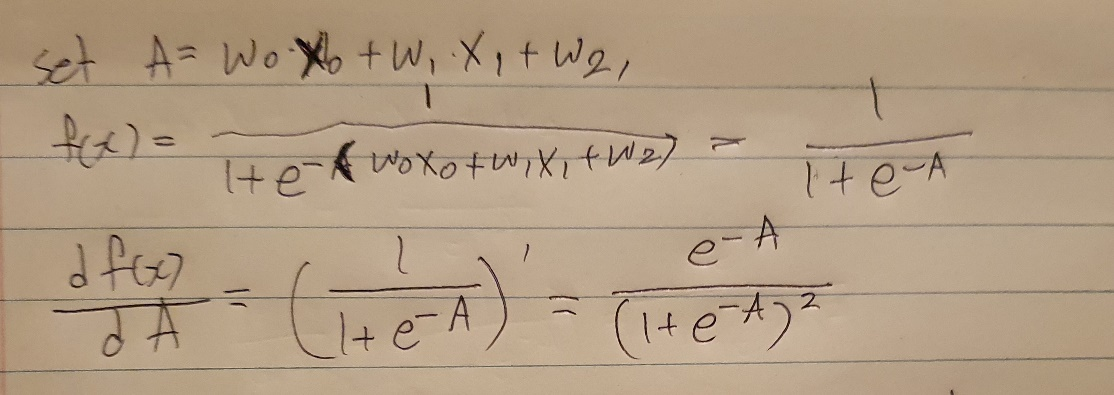 set A = w₀·x₀ + w₁·x₁ + w₂,
f(x) = 1 / (1+e^-(w₀x₀+w₁x₁+w₂)) = 1 / (1+e^-A)
d f(x) / d A = (1 / (1+e^-A))' = e^-A / (1+e^-A)²